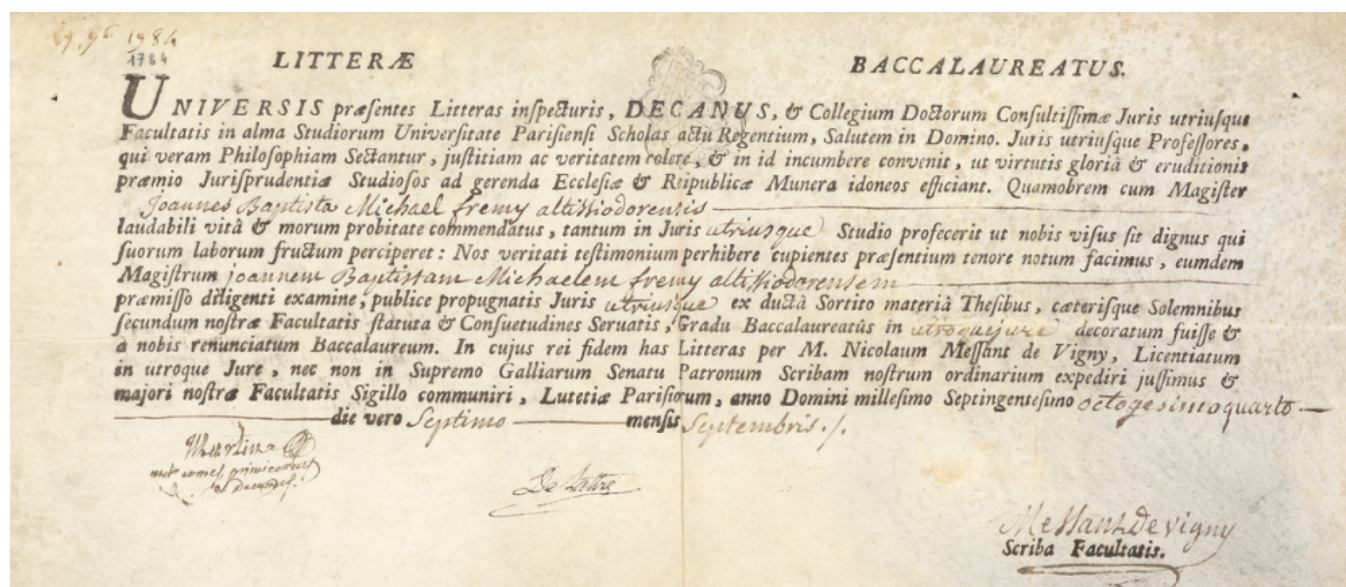 29. 7bre 1784
1784
LITTERÆ BACCALAUREATUS.
UNIVERSIS præsentes Litteras inſpecturis, DECANUS, & Collegium Doctorum Conſultiſſimæ Juris utriuſque
Facultatis in alma Studiorum Univerſitate Pariſienſi Scholas actu Regentium, Salutem in Domino. Juris utriuſque Profeſſores,
qui veram Philoſophiam Sectantur, juſtitiam ac veritatem colere, & in id incumbere convenit, ut virtutis gloriâ & eruditionis
præmio Juriſprudentiæ Studioſos ad gerenda Eccleſiæ & Reipublicæ Munera idoneos efficiant. Quamobrem cum Magiſter
Joannes Baptista Michael fremy altissiodorensis
laudabili vitâ & morum probitate commendatus, tantum in Juris utriusque Studio profecerit ut nobis viſus ſit dignus qui
ſuorum laborum fructum perciperet : Nos veritati teſtimonium perhibere cupientes præſentium tenore notum facimus, eumdem
Magiſtrum joannem Baptistam Michaelem fremy altissiodorensem
præmiſſo diligenti examine, publice propugnatis Juris utriusque ex ductâ Sortito materiâ Theſibus, cæteriſque Solemnibus
ſecundum noſtræ Facultatis ſtatuta & Conſuetudines Servatis, Gradu Baccalaureatûs in utroque jure decoratum fuiſſe &
a nobis renunciatum Baccalaureum. In cujus rei fidem has Litteras per M. Nicolaum Meſſant de Vigny, Licentiatum
in utroque Jure, nec non in Supremo Galliarum Senatu Patronum Scribam noſtrum ordinarium expediri juſſimus &
majori noſtræ Facultatis Sigillo communiri, Lutetiæ Pariſiorum, anno Domini milleſimo Septingenteſimo octogesimo quarto
die vero Septimo mensis Septembris ./.
Martin
et
De Lattre
Messant De vigny
Scriba Facultatis.